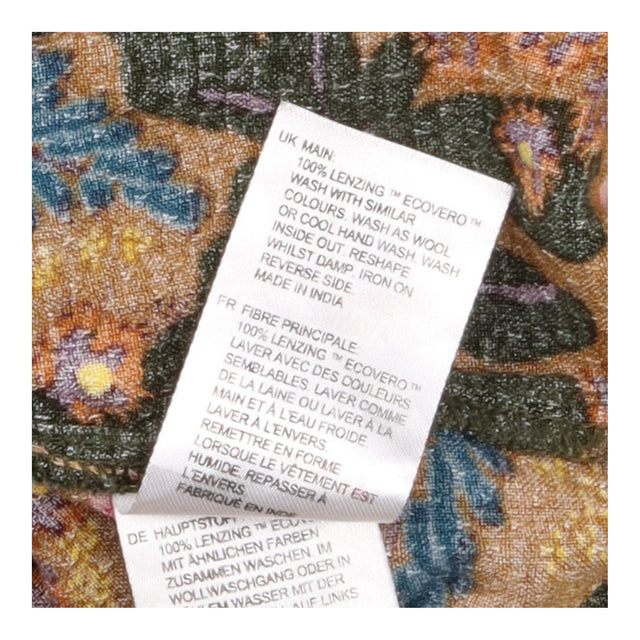 UK MAIN:
100% LENZING ™ ECOVERO™
WASH WITH SIMILAR
COLOURS. WASH AS WOOL
OR COOL HAND WASH. WASH
INSIDE OUT. RESHAPE
WHILST DAMP. IRON ON
REVERSE SIDE.
MADE IN INDIA
FR FIBRE PRINCIPALE:
100% LENZING ™ ECOVERO™
LAVER AVEC DES COULEURS
SEMBLABLES. LAVER COMME
DE LA LAINE OU LAVER À LA
MAIN ET À L'EAU FROIDE
LAVER À L'ENVERS.
REMETTRE EN FORME
LORSQUE LE VÊTEMENT EST
HUMIDE. REPASSER À
L'ENVERS.
FABRIQUÉ EN INDE
DE HAUPTSTOF
100% LENZING ™ ECOV
MIT ÄHNLICHEN FARBEN
ZUSAMMEN WASCHEN. IM
WOLLWASCHGANG ODER IN
WASSER MIT DER
AUF LINKS